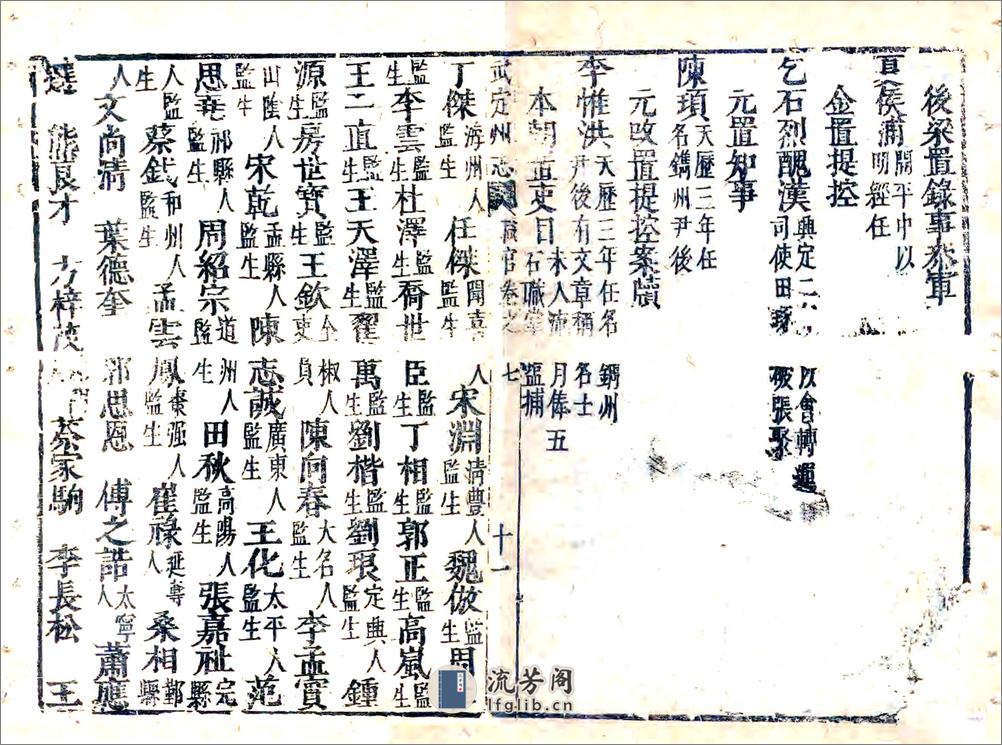 後梁置錄事參軍
侯浦開平中以明經任
金置提控
乞石烈醜漢興定二 以會轉運司使田琢破張聚
元置知事
陳頊天歷三年任名鐫州尹後
元改置提控案牘
李惟洪天歷三年任名鐫州尹後有文章稱名士
本朝置吏目未入流月俸五石職掌巡捕
武定州志 職官卷之七 十一
丁傑海州人監生 任傑聞喜人監生 宋淵清豐人監生 魏倣監生 周
李雲監生 杜澤監生 喬世臣監生 丁相監生 郭正監生 高嵐監生
王二直監生 王天澤監生 翟萬監生 劉楷監生 劉琅定興人監生 鍾
源監生 房世寳 王欽全椒人吏員 陳向春大名人監生 李孟實
山陰人監生 宋乾孟縣人監生 陳志誠廣東人監生 王化太平人監生 范
思 祁縣人監生 周紹宗道州人監生 田秋高陽人監生 張嘉祉定縣
人監生 蔡鉞和州人監生 孟雲鳳棗强人監生 崔祿延壽人 桑相鄞縣
人 文尚清 葉德奎 郭思恩 傅之誥太寧人 蕭應
達 熊良才 方梓茂 蔡家駒 李長松 王
流芳阁
lfglib.cn